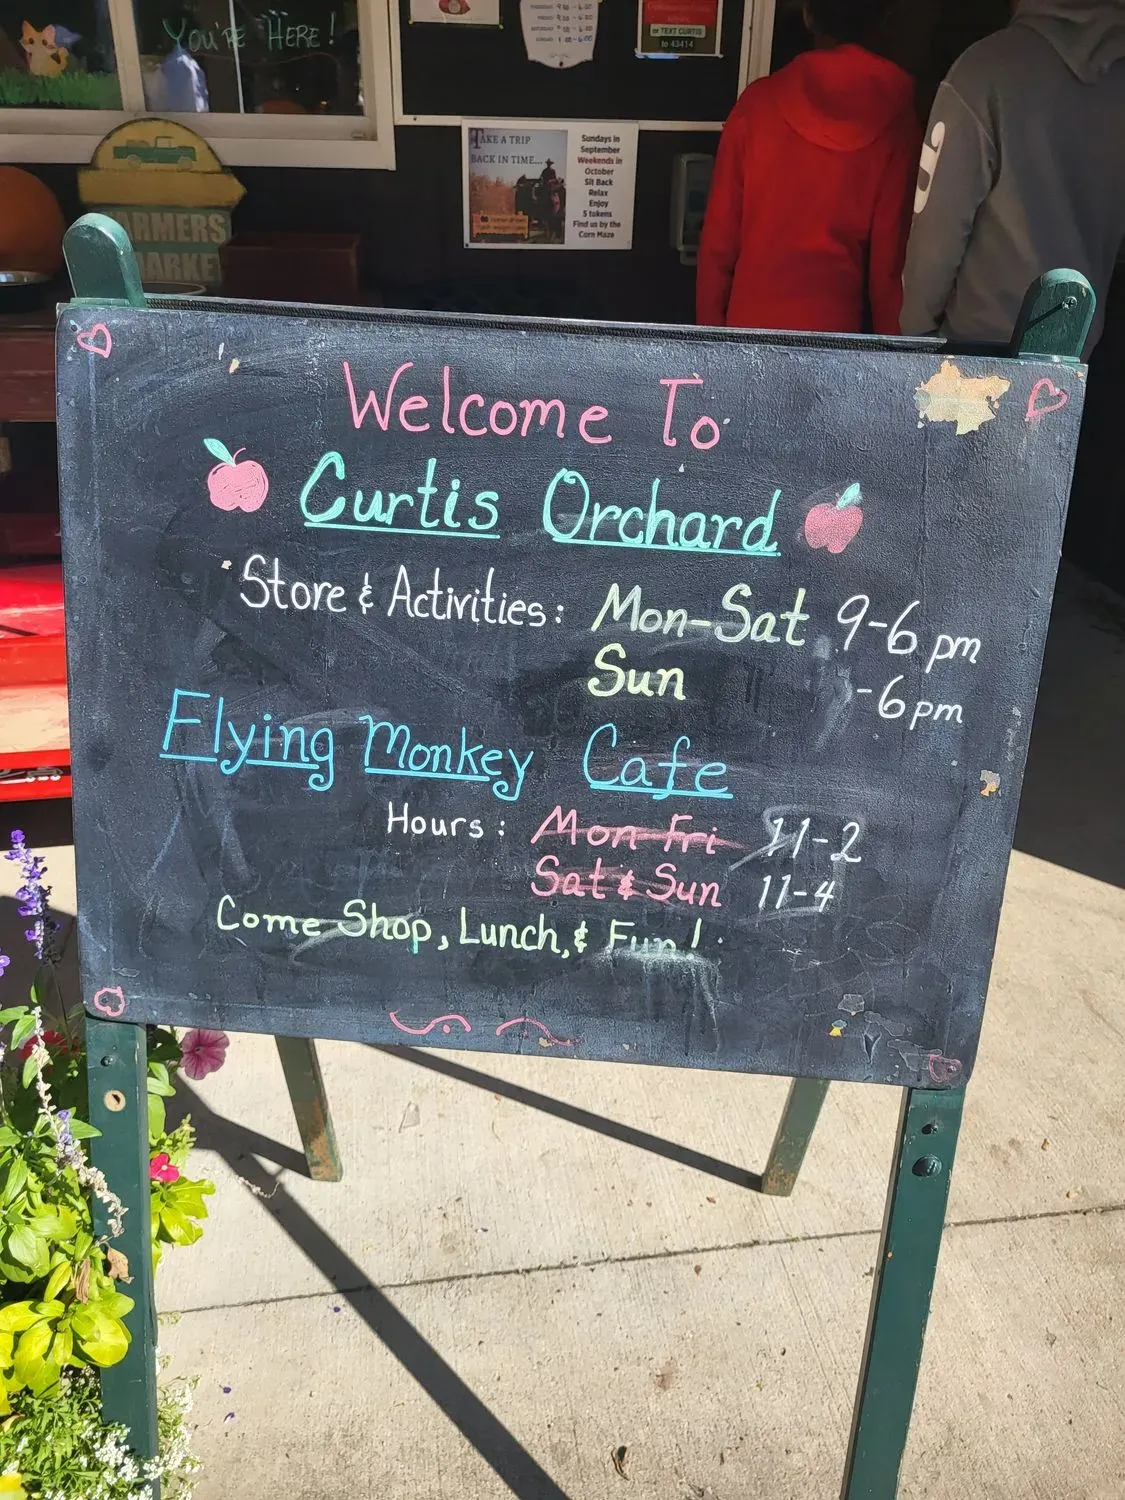 You're Here!
or TEXT CURTIS
to 43414
FARMERS
MARKET
TAKE A TRIP
BACK IN TIME...
Sundays in
September
Weekends in
October
Sit Back
Relax
Enjoy
5 tokens
Find us by the
Corn Maze
Welcome To
Curtis Orchard
Store & Activities: Mon-Sat 9-6 pm
Sun -6 pm
Flying Monkey Cafe
Hours: Mon-Fri 11-2
Sat & Sun 11-4
Come Shop, Lunch, & Fun!